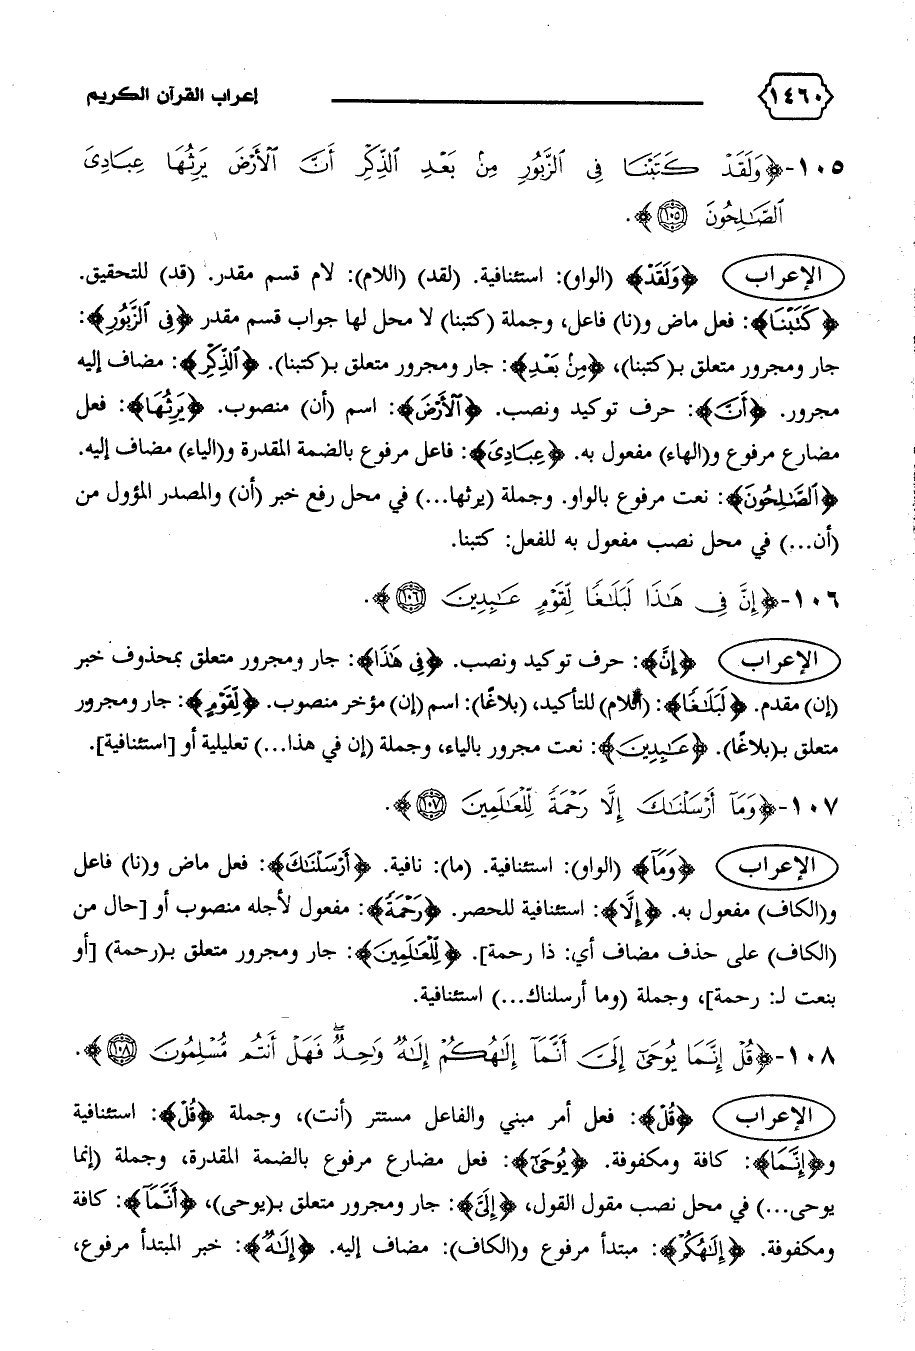 ١٤٦٠ إعراب القرآن الكريم
١٠٥-﴿وَلَقَدْ كَتَبْنَا فِى ٱلزَّبُورِ مِنۢ بَعْدِ ٱلذِّكْرِ أَنَّ ٱلْأَرْضَ يَرِثُهَا عِبَادِىَ
ٱلصَّٰلِحُونَ ﴿١٠٥﴾﴾.
الإعراب ﴿وَلَقَدْ﴾ (الواو): استئنافية. (لقد) (اللام): لام قسم مقدر. (قد) للتحقيق.
﴿كَتَبْنَا﴾: فعل ماض و(نا) فاعل، وجملة (كتبنا) لا محل لها جواب قسم مقدر ﴿فِى ٱلزَّبُورِ﴾:
جار ومجرور متعلق بـ(كتبنا)، ﴿مِنۢ بَعْدِ﴾: جار ومجرور متعلق بـ(كتبنا). ﴿ٱلذِّكْرِ﴾: مضاف إليه
مجرور. ﴿أَنَّ﴾: حرف توكيد ونصب. ﴿ٱلْأَرْضَ﴾: اسم (أن) منصوب. ﴿يَرِثُهَا﴾: فعل
مضارع مرفوع و(الهاء) مفعول به. ﴿عِبَادِىَ﴾: فاعل مرفوع بالضمة المقدرة و(الياء) مضاف إليه.
﴿ٱلصَّٰلِحُونَ﴾: نعت مرفوع بالواو. وجملة (يرثها...) في محل رفع خبر (أن) والمصدر المؤول من
(أن...) في محل نصب مفعول به للفعل: كتبنا.
١٠٦-﴿إِنَّ فِى هَٰذَا لَبَلَٰغًا لِّقَوْمٍ عَٰبِدِينَ ﴿١٠٦﴾﴾.
الإعراب ﴿إِنَّ﴾: حرف توكيد ونصب. ﴿فِى هَٰذَا﴾: جار ومجرور متعلق بمحذوف خبر
(إن) مقدم. ﴿لَبَلَٰغًا﴾: (اللام) للتأكيد، (بلاغًا): اسم (إن) مؤخر منصوب. ﴿لِّقَوْمٍ﴾: جار ومجرور
متعلق بـ(بلاغًا). ﴿عَٰبِدِينَ﴾: نعت مجرور بالياء، وجملة (إن في هذا...) تعليلية أو [استئنافية].
١٠٧-﴿وَمَآ أَرْسَلْنَٰكَ إِلَّا رَحْمَةً لِّلْعَٰلَمِينَ ﴿١٠٧﴾﴾.
الإعراب ﴿وَمَآ﴾ (الواو): استئنافية. (ما): نافية. ﴿أَرْسَلْنَٰكَ﴾: فعل ماض و(نا) فاعل
و(الكاف) مفعول به. ﴿إِلَّا﴾: استئنافية للحصر. ﴿رَحْمَةً﴾: مفعول لأجله منصوب أو [حال من
(الكاف) على حذف مضاف أي: ذا رحمة]. ﴿لِّلْعَٰلَمِينَ﴾: جار ومجرور متعلق بـ(رحمة) [أو
بنعت لـ: رحمة]، وجملة (وما أرسلناك...) استئنافية.
١٠٨-﴿قُلْ إِنَّمَا يُوحَىٰٓ إِلَىَّ أَنَّمَآ إِلَٰهُكُمْ إِلَٰهٌ وَٰحِدٌ ۖ فَهَلْ أَنتُم مُّسْلِمُونَ ﴿١٠٨﴾﴾.
الإعراب ﴿قُلْ﴾: فعل أمر مبني والفاعل مستتر (أنت)، وجملة ﴿قُلْ﴾: استئنافية
و﴿إِنَّمَا﴾: كافة ومكفوفة. ﴿يُوحَىٰٓ﴾: فعل مضارع مرفوع بالضمة المقدرة، وجملة (إنما
يوحى...) في محل نصب مقول القول، ﴿إِلَىَّ﴾: جار ومجرور متعلق بـ(يوحى)، ﴿أَنَّمَآ﴾: كافة
ومكفوفة. ﴿إِلَٰهُكُمْ﴾: مبتدأ مرفوع و(الكاف): مضاف إليه. ﴿إِلَٰهٌ﴾: خبر المبتدأ مرفوع،